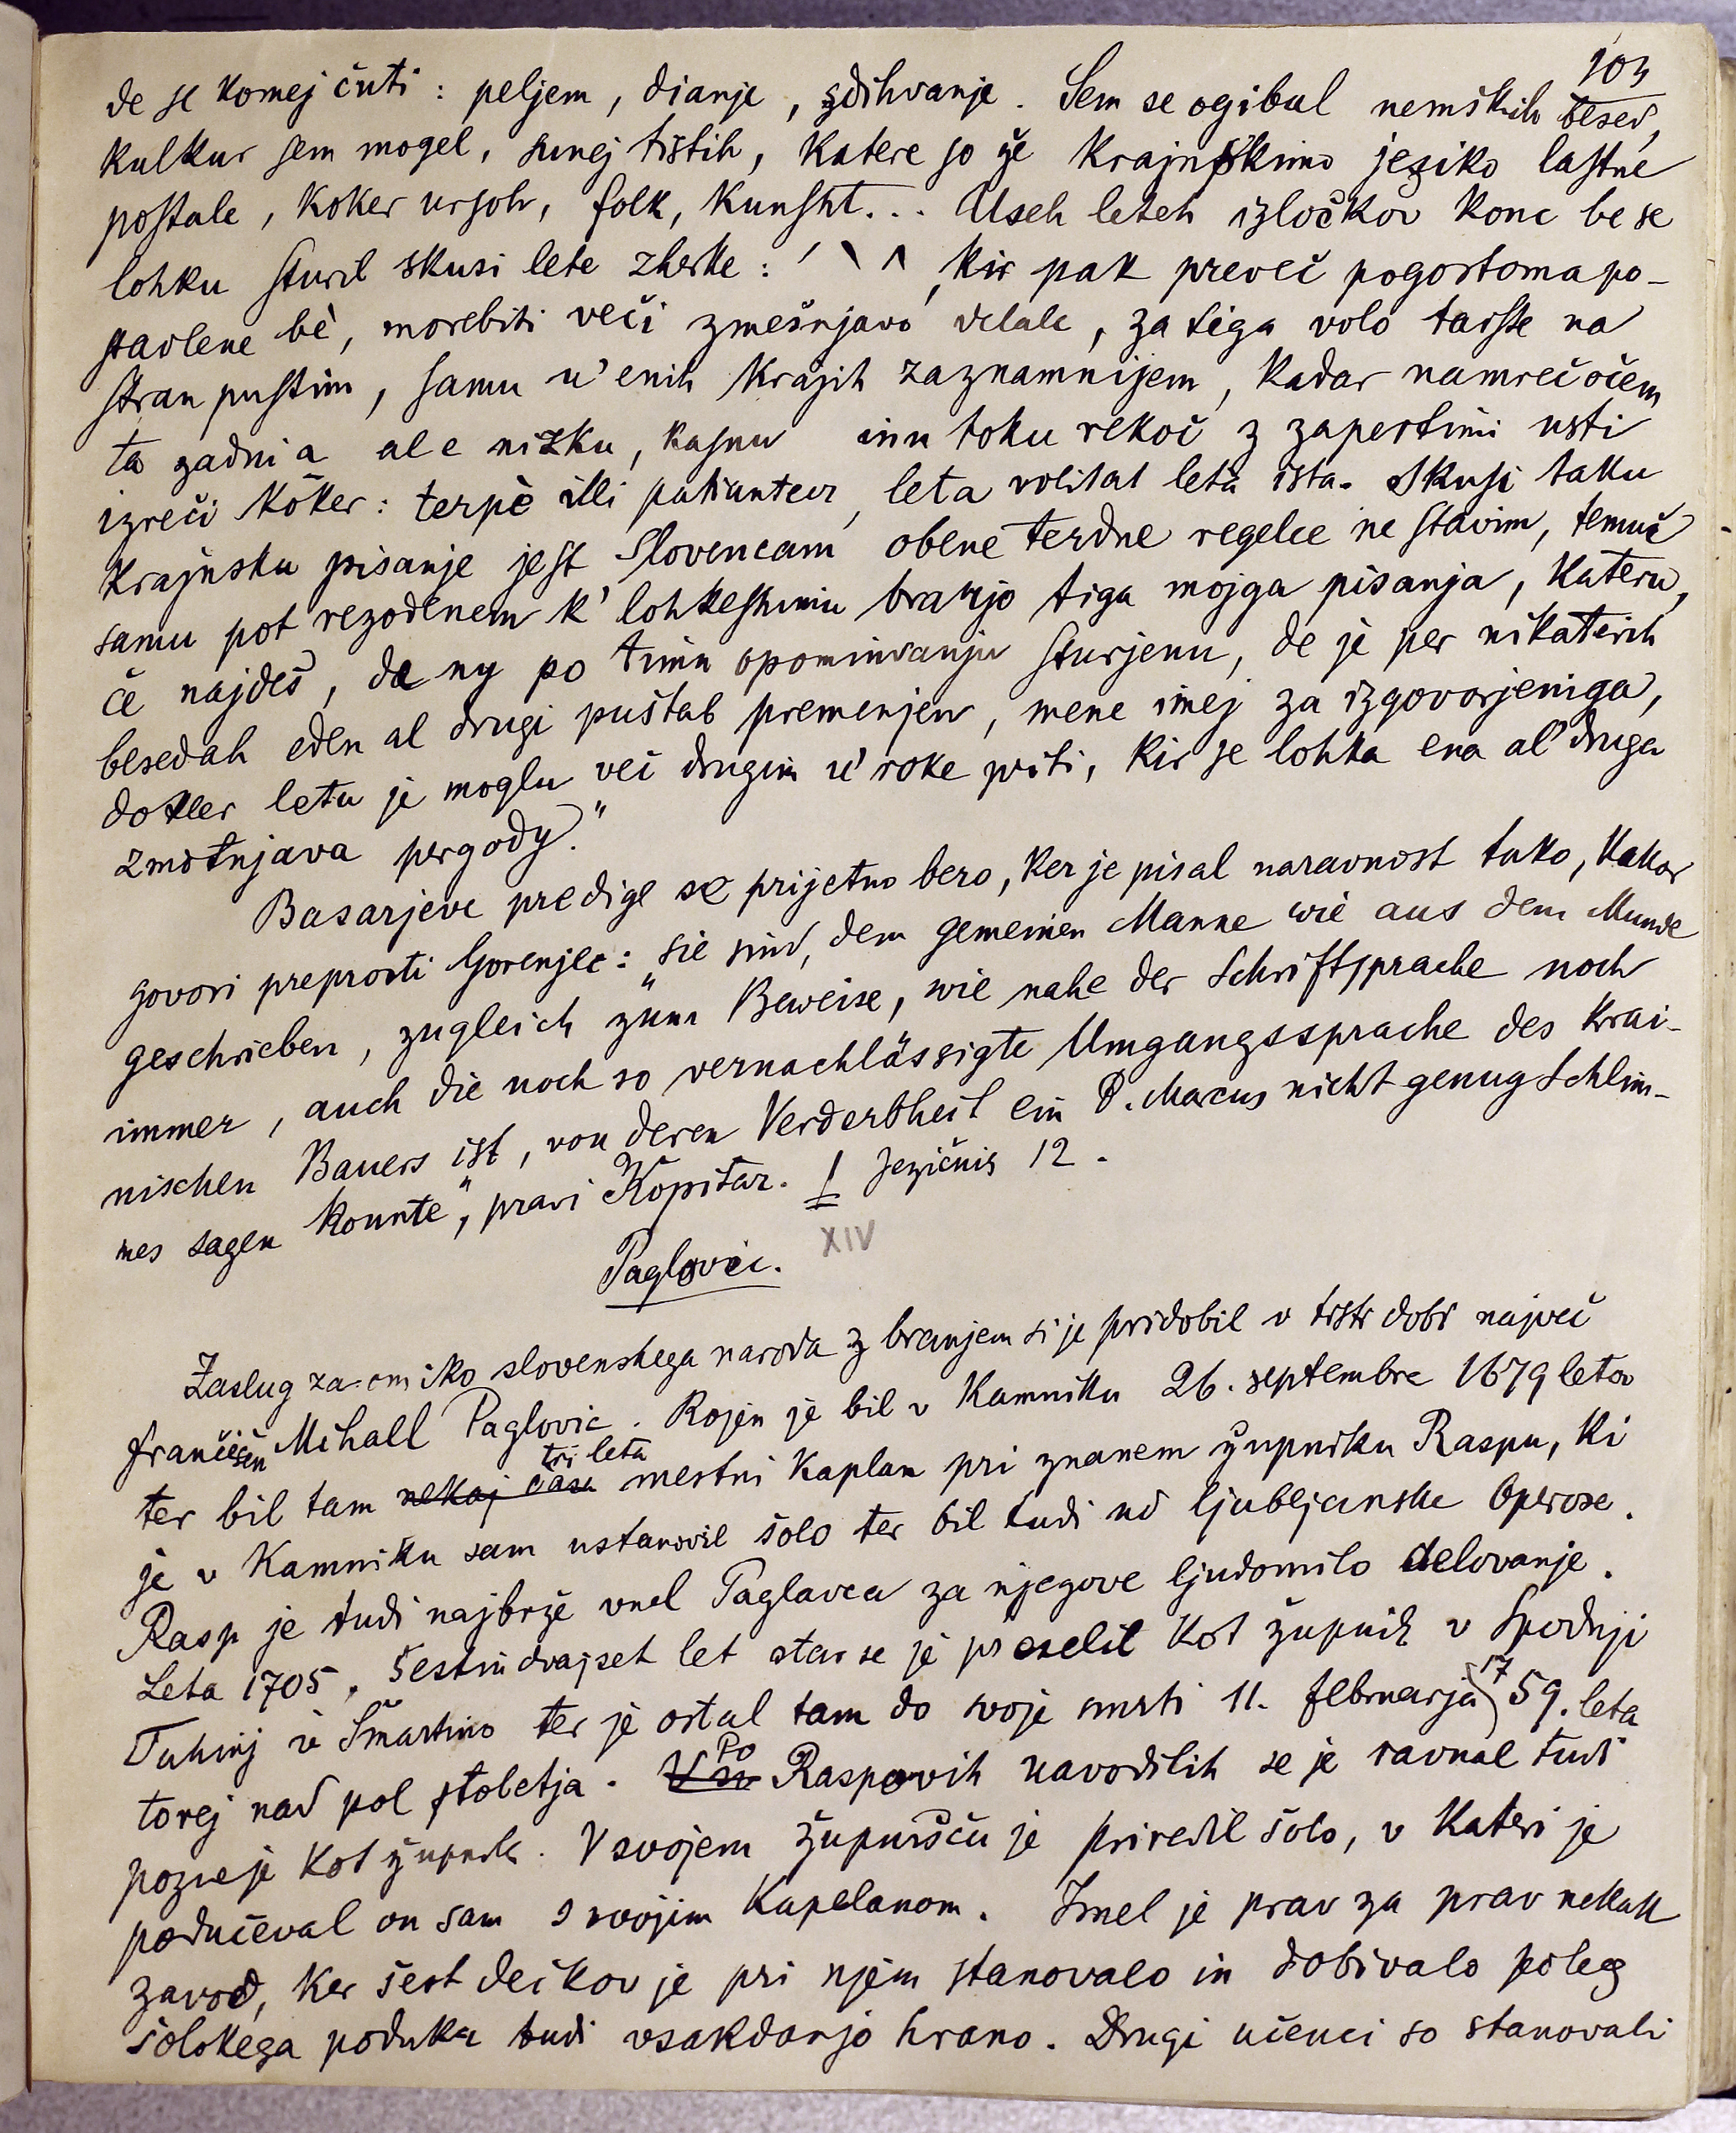 103
de se komej čuti: peljem, dianje, zdihvanje. Sem se ogibal nemških besed,
kulkur sem mogel, sunej tistih, katere so že krajnskimo jeziko lastne
postale, koker ursoh, folk, kunsht... Useh leteh izločkov konc be se
lohku sturil skusi lete zherke: ´ ` ^, kir pak preveč pogostoma po-
stavlene bè, morebiti veči zmešnjavo delale, za tiga volo tarsse na
stran pustim, samu u' enih krajih zaznamnijem, kadar namreč očem
ta zadni a al e nizku, kasnu inu toku rekoč z zapertimi usti
izreči kôker: terpè illi patiuntur, leta volitat letà ista. Skusi taku
krajnsku pisanje jest Slovencam obene terdne regelce ne stavim, temuč
samu pot rezodenem k' lohkeshimu branjo tiga mojga pisanja, kateru,
če najdeš, de ny po timu opominvanju sturjenu, de je per nikaterih
besedah eden al drugi puštab premenjen, mene imej za izgovorjeniga,
dokler letu je moglu več drugim u' roke priti, kir se lohka ena al' druga
zmotnjava pergody."
Basarjeve predige se prijetno bero, ker je pisal naravnost tako, kakor
govori preprosti Gorenjec: „sie sind, dem gemeinen Manne wie aus dem Munde
geschrieben, zugleich zum Beweise, wie nahe der Schriftsprache noch
immer, auch die noch so vernachlässigte Umgangssprache des krai-
nischen Bauers ist, von deren Verderbheit ein P. Marcus nicht genug Schlim-
mes sagen konnte", pravi Kopitar. ! Jezičnik 12.
XIV
Paglovic.
Zaslug za omiko slovenskega naroda z branjem si je pridobil v tisti dobi največ
Frančišek Mihall Paglovic. Rojen je bil v Kamniku 26. septembre 1679 leta
ter bil tam nekaj časa tri leta mestni kaplan pri znanem župniku Raspu, ki
je v Kamniku sam ustanovil šolo ter bil tudi ud ljubljanske Operose.
Rasp je tudi najbrže vnel Paglavca za njegove ljudomilo delovanje.
Leta 1705, šestindvajset let star se je preselil kot župnik v Spodnji
Tuhinj v Šmartino ter je ostal tam do svoje smrti 11. februarja 1759. leta
torej nad pol stoletja. V sv Po Raspovih navodilih se je ravnal tudi
pozneje kot župnik. V svojem župnišču je priredil šolo, v kateri je
podučeval on sam s svojim kapelanom. Imel je prav za prav nekak
zavod, ker šest dečkov je pri njem stanovalo in dobivalo poleg
šolskega poduka tudi vsakdanjo hrano. Drugi učenci so stanovali